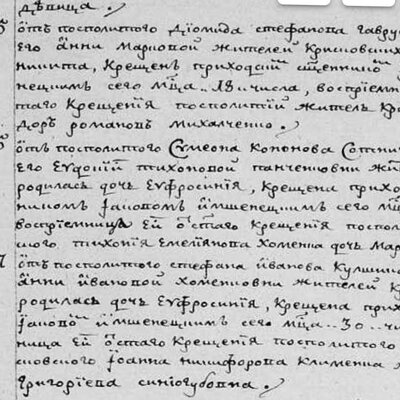 дѣвица.
ѿ посполитого Діомида стефанова гавру
его Анни Марковой жителей Крисковских
никита, Крещенъ приходским сщенико
нещимъ сего мца.. 28 числа, воспріем
таго Крещенія посполитій житель Кр
доръ романовъ михалченко.
ѿ посполитого Сѵмеона Кононова Сотни
его Еѵдокіи тихоновой панченковни жит
родилась дочь Еѵфросинія, крещена прихо
никомъ Іаковомъ
воспріемница Ей ѿ стаго Крещенія поспол
тихонія Емеліянова Хоменка дочь Мар
ѿ посполитого стефана іванова Кулшин
Анни івановой Хоменковни жителей К
родилась дочь Еѵфросинія, Крещена прих
Іаково сего мца.. 30.. чи
ница Ей ѿ стаго Крещенія посполитого
сковского Іоанна никифорова Клименка
григоріева синіогубовна.